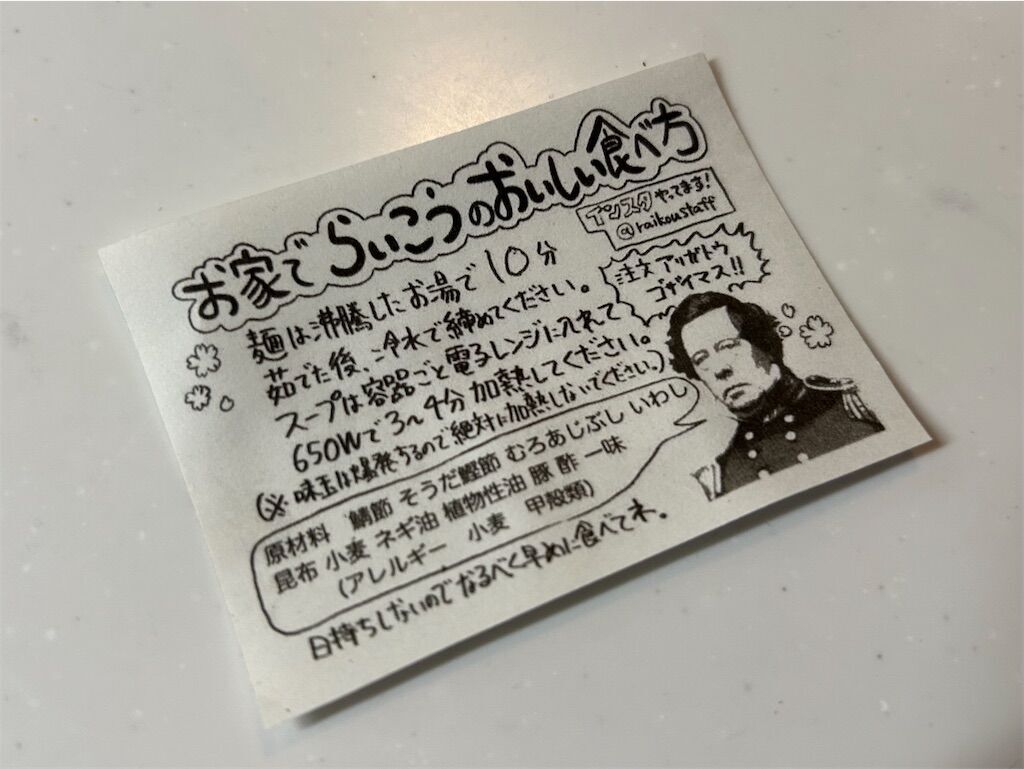 お家で らいこうのおいしい食べ方
インスタやってます!
@raikoustaff
注文アリガトウ
ゴザイマス!!
麺は沸騰したお湯で10分
茹でた後、冷水で締めてください。
スープは容器ごと電子レンジに入れて
650Wで3〜4分加熱してください。
(※味玉は爆発するので絶対に加熱しないでください。)
原材料 鯖節 そうだ鰹節 むろあじぶし いわし
昆布 小麦 ネギ油 植物性油 豚 酢 一味
(アレルギー 小麦 甲殻類)
日持ちしないのでなるべく早めに食べてネ。